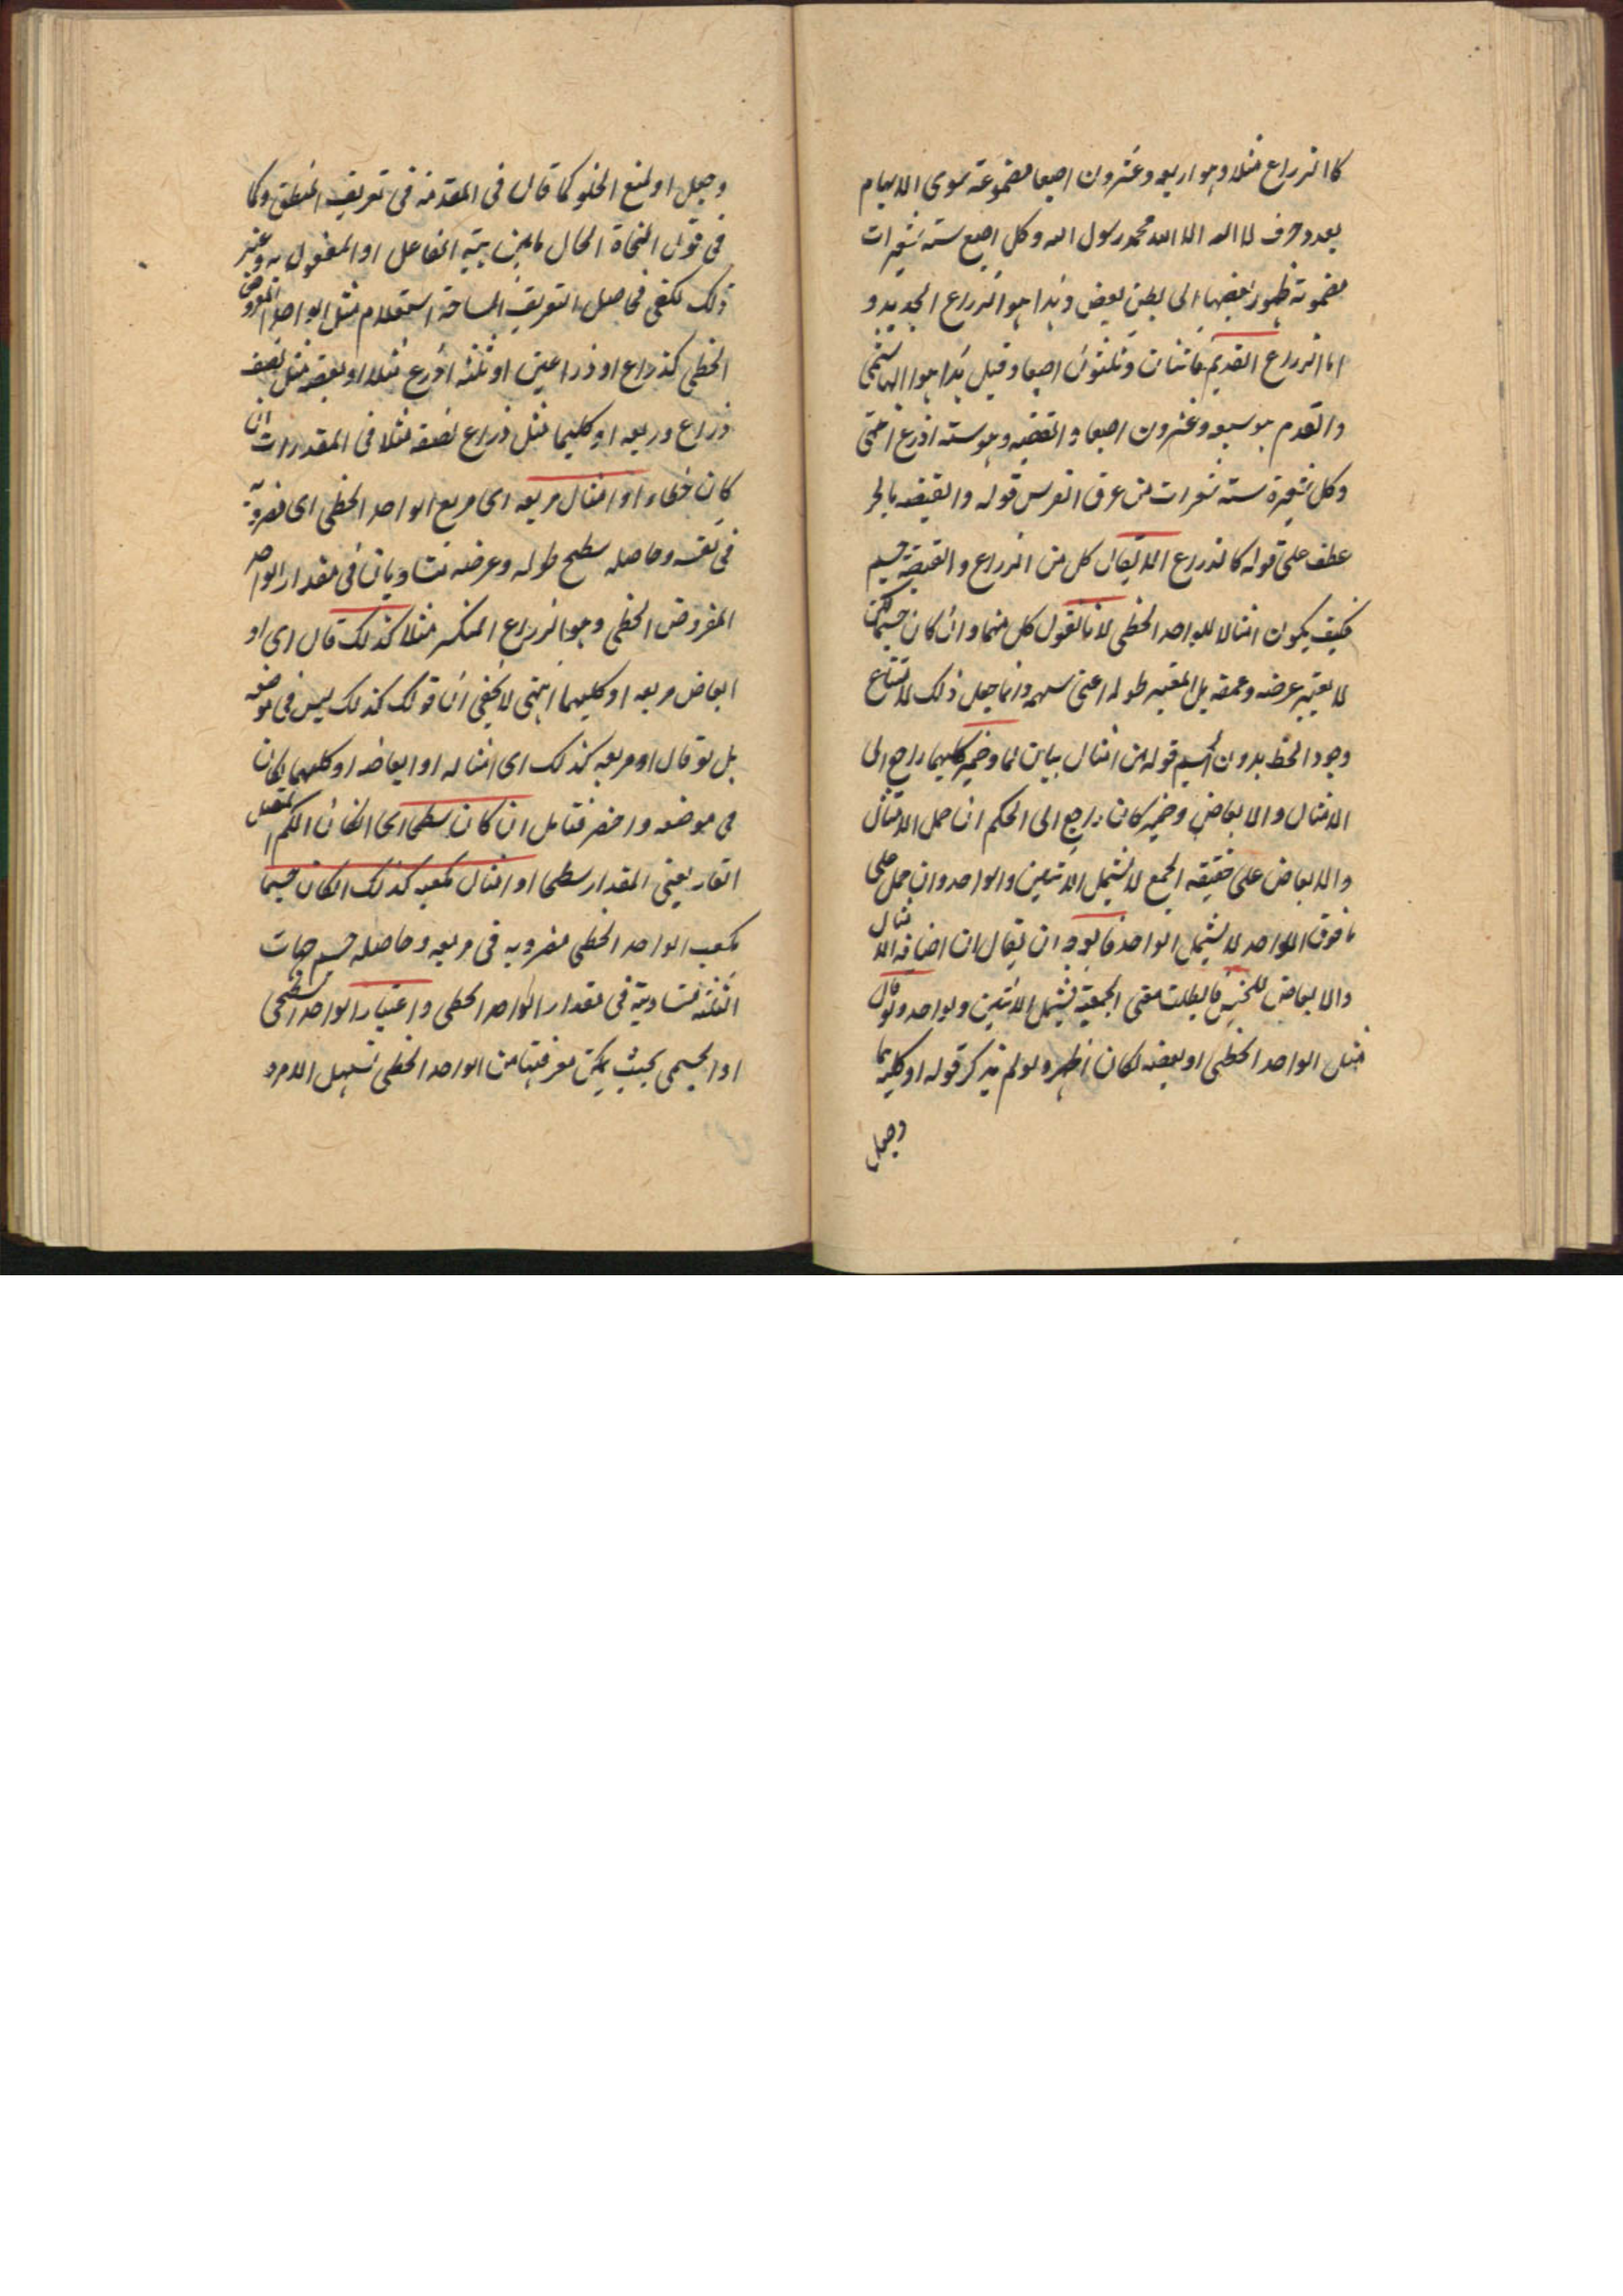 كالذراع مثلا وهو اربعة وعشرون اصبعا مضمومة سوى الابهام
بعدد حرف لا اله الا الله محمد رسول الله وكل اصبع ستة شعيرات
مضمومة ظهور بعضها الى بطن بعض وهذا هو الذراع الجديد و
اما الذراع القديم فاثنان وثلثون اصبعا وقيل هذا هو الهاشمى
والقدم هو سبعة وعشرون اصبعا والقصبة وهو ستة اذرع
وكل شعيرة ستة شعرات من عرف الفرس قوله والقبضة بالجر
عطف على قوله كالذراع لا يقال كل من الذراع والقبضة جسم
فكيف يكون امثالا للواحد الخطى لانا نقول كل منهما وان كان جسما لكن
لا يعتبر عرضه وعمقه بل المعتبر طوله اعنى سهمه وانما جعل ذلك لامتناع
وجود الخط بدون الجسم قوله من امثال بيان لما وضمير كليهما راجع الى
الامثال والابعاض وضمير كان راجع الى الحكم ان حمل الامثال
والابعاض على حقيقة الجمع لا يشمل الاثنين والواحد وان حمل على
ما فوق الواحد لا يشمل الواحد فالوجه ان يقال ان اضافة الامثال
والابعاض للجنس فابطلت معنى الجمعية فيشمل الاثنين والواحد ولو قال
مثل الواحد الخطى او بعضه لكان اظهر ولو لم يذكر قوله او كليهما
وجعل
وجعل او لمنع الخلو كما قال فى المقدمة فى تعريف المنطق وكما
فى قول النحاة الحال ما يبين هيئة الفاعل او المفعول به وغير
ذلك لكفى فحاصل التعريف المساحة استعلام مثل الواحد المفروض
الخطى كذراع او ذراعين او ثلثة اذرع مثلا او بعضه مثل نصف
ذراع وربعه او كليهما مثل ذراع نصفه مثلا فى المقدرات ان
كان خطا او امثال مربعه اى مربع الواحد الخطى اى مضروبه
فى نفسه وحاصله سطح طوله وعرضه متساويان فى مقدار الواحد
المفروض الخطى وهو الذراع المنكسر مثلا كذلك قال اى او
ابعاض مربعه او كليهما انتهى لا يخفى ان قولك كذلك ليس فى موضعه
بل لو قال او مربعه كذلك اى امثاله او ابعاضه او كليهما لكان
فى موضعه واخصر فتامل ان كان سطحا اى ان كان الكم المتصل
القار يعنى المقدار سطحا او امثال مكعبه كذلك ان كان جسما
مكعب الواحد الخطى مضروبه فى مربعه وحاصله جسم جهات
الثلثة متساوية فى مقدار الواحد الخطى واعتبار الواحد السطحى
او الجسمى بحيث يمكن معرفتها من الواحد الخطى تسهيل الامر و